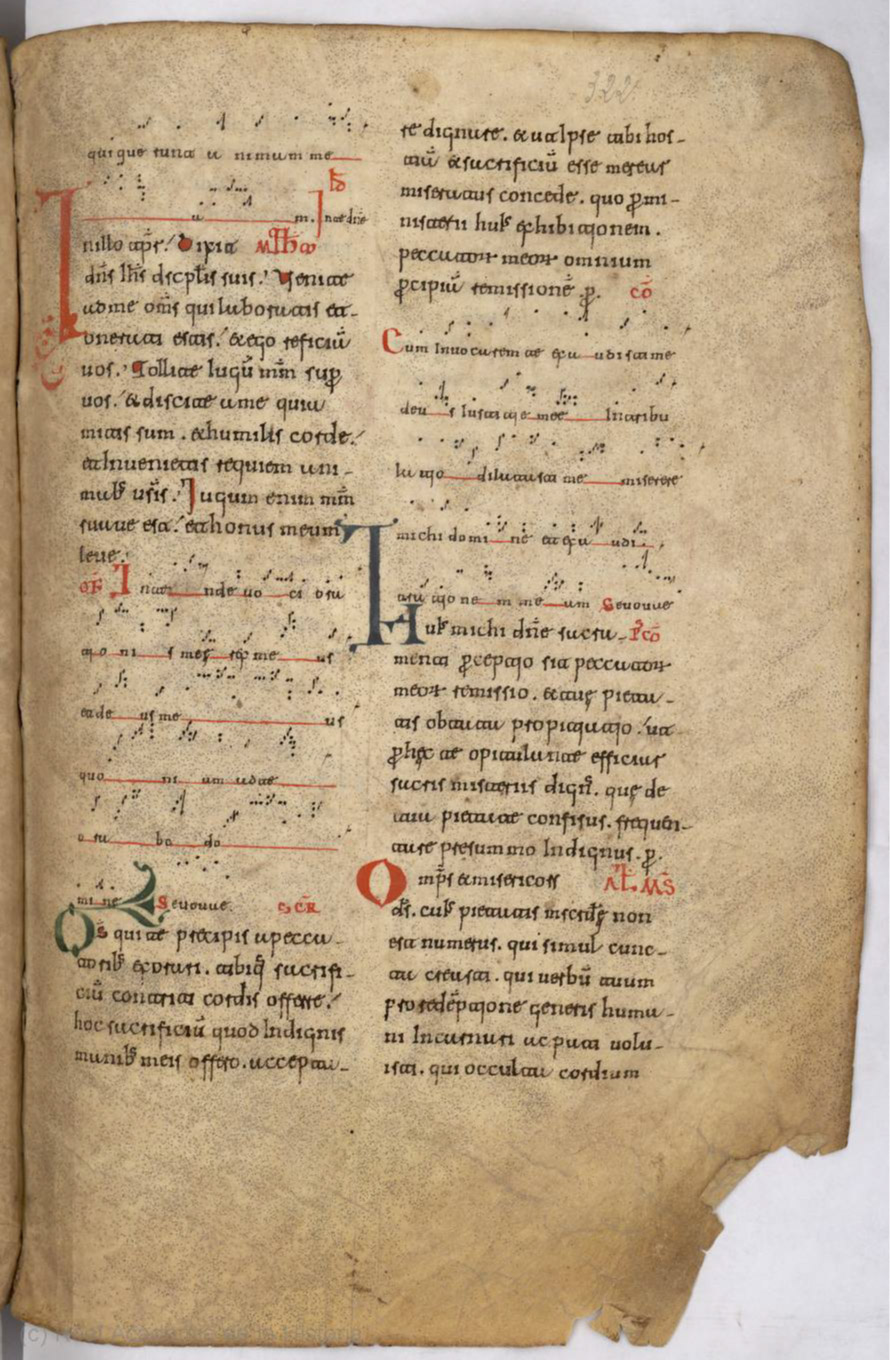 322
qui que runt a nimum me
a m. Inte dñe
In illo tp̄r. Dixit Mth̄
dñs ih̄s discpl̃is suis. Venite
ad me om̄s qui laboratis et
onerati estis. & ego reficiã
uos. Tollite Iugũ m̃m sup̱
uos. & discite a me quia
mitis sum . & humilis corde.
et Inuenietis requiem ani-
mab; ur̃is. Iugum enim m̃m
suaue est. et honus meum
leue.
OF Inte nde uo ci ora
tio ni s meę rex me us
et de us me us
quo ni am ad te
o ra bo do
mi ne Seuouae. SCR̃
Ds̃ qui te precipis a pecca-
torib; exorari. tibiq; sacrifi-
ciũ contriti cordis offerre.
hoc sacrificiũ quod Indignis
manib; meis offero. accepta-
re dignare. & ut Ipse tibi hos-
tiã & sacrificiũ esse merear
miseratus concede. quo p̱ mi-
nisterii huius exhibitionem.
peccator̃ meor̃ omnium
p̱cipiã remissionẽ. p̱. cõ
Cum Inuocarem te exa udisti me
deu s Iustitie mee In tribu
la tio dilatasti me miserere
michi domi ne et exa udi
oratio ne m me am Seuouae
Hui; michi dñe sacra- Pcõ
menti p̱ceptio sit peccator̃
meor̃ remissio. & tuę pieta-
tis obtata propitiatio. ut
p̱ hęc te opitulante efficiar
sacris misteriis dign;. quę de
tua pietate confisus. frequen-
tare presummo Indignus. p̱.
Omp̃s & misericors AL̃ MS̃
ds̃. cui; pietatis mscr̃dię non
est numerus. qui simul cunc-
ta creasti. qui uerbũ tuum
pro redẽptione generis huma-
ni Incarnari ac pati uolu-
isti. qui occulta cordium